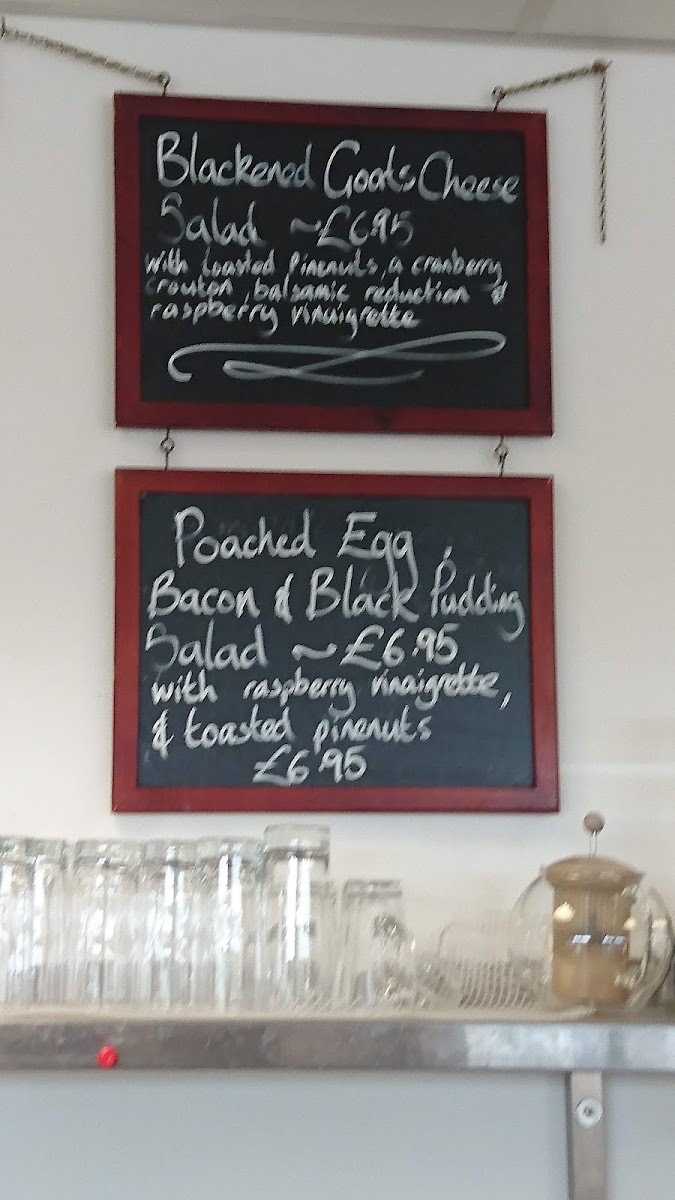 Blackened Goats Cheese
Salad ~ £6.95
with toasted pinenuts, a cranberry
crouton, balsamic reduction &
raspberry vinaigrette
Poached Egg,
Bacon & Black Pudding
Salad ~ £6.95
with raspberry vinaigrette,
& toasted pinenuts
£6.95